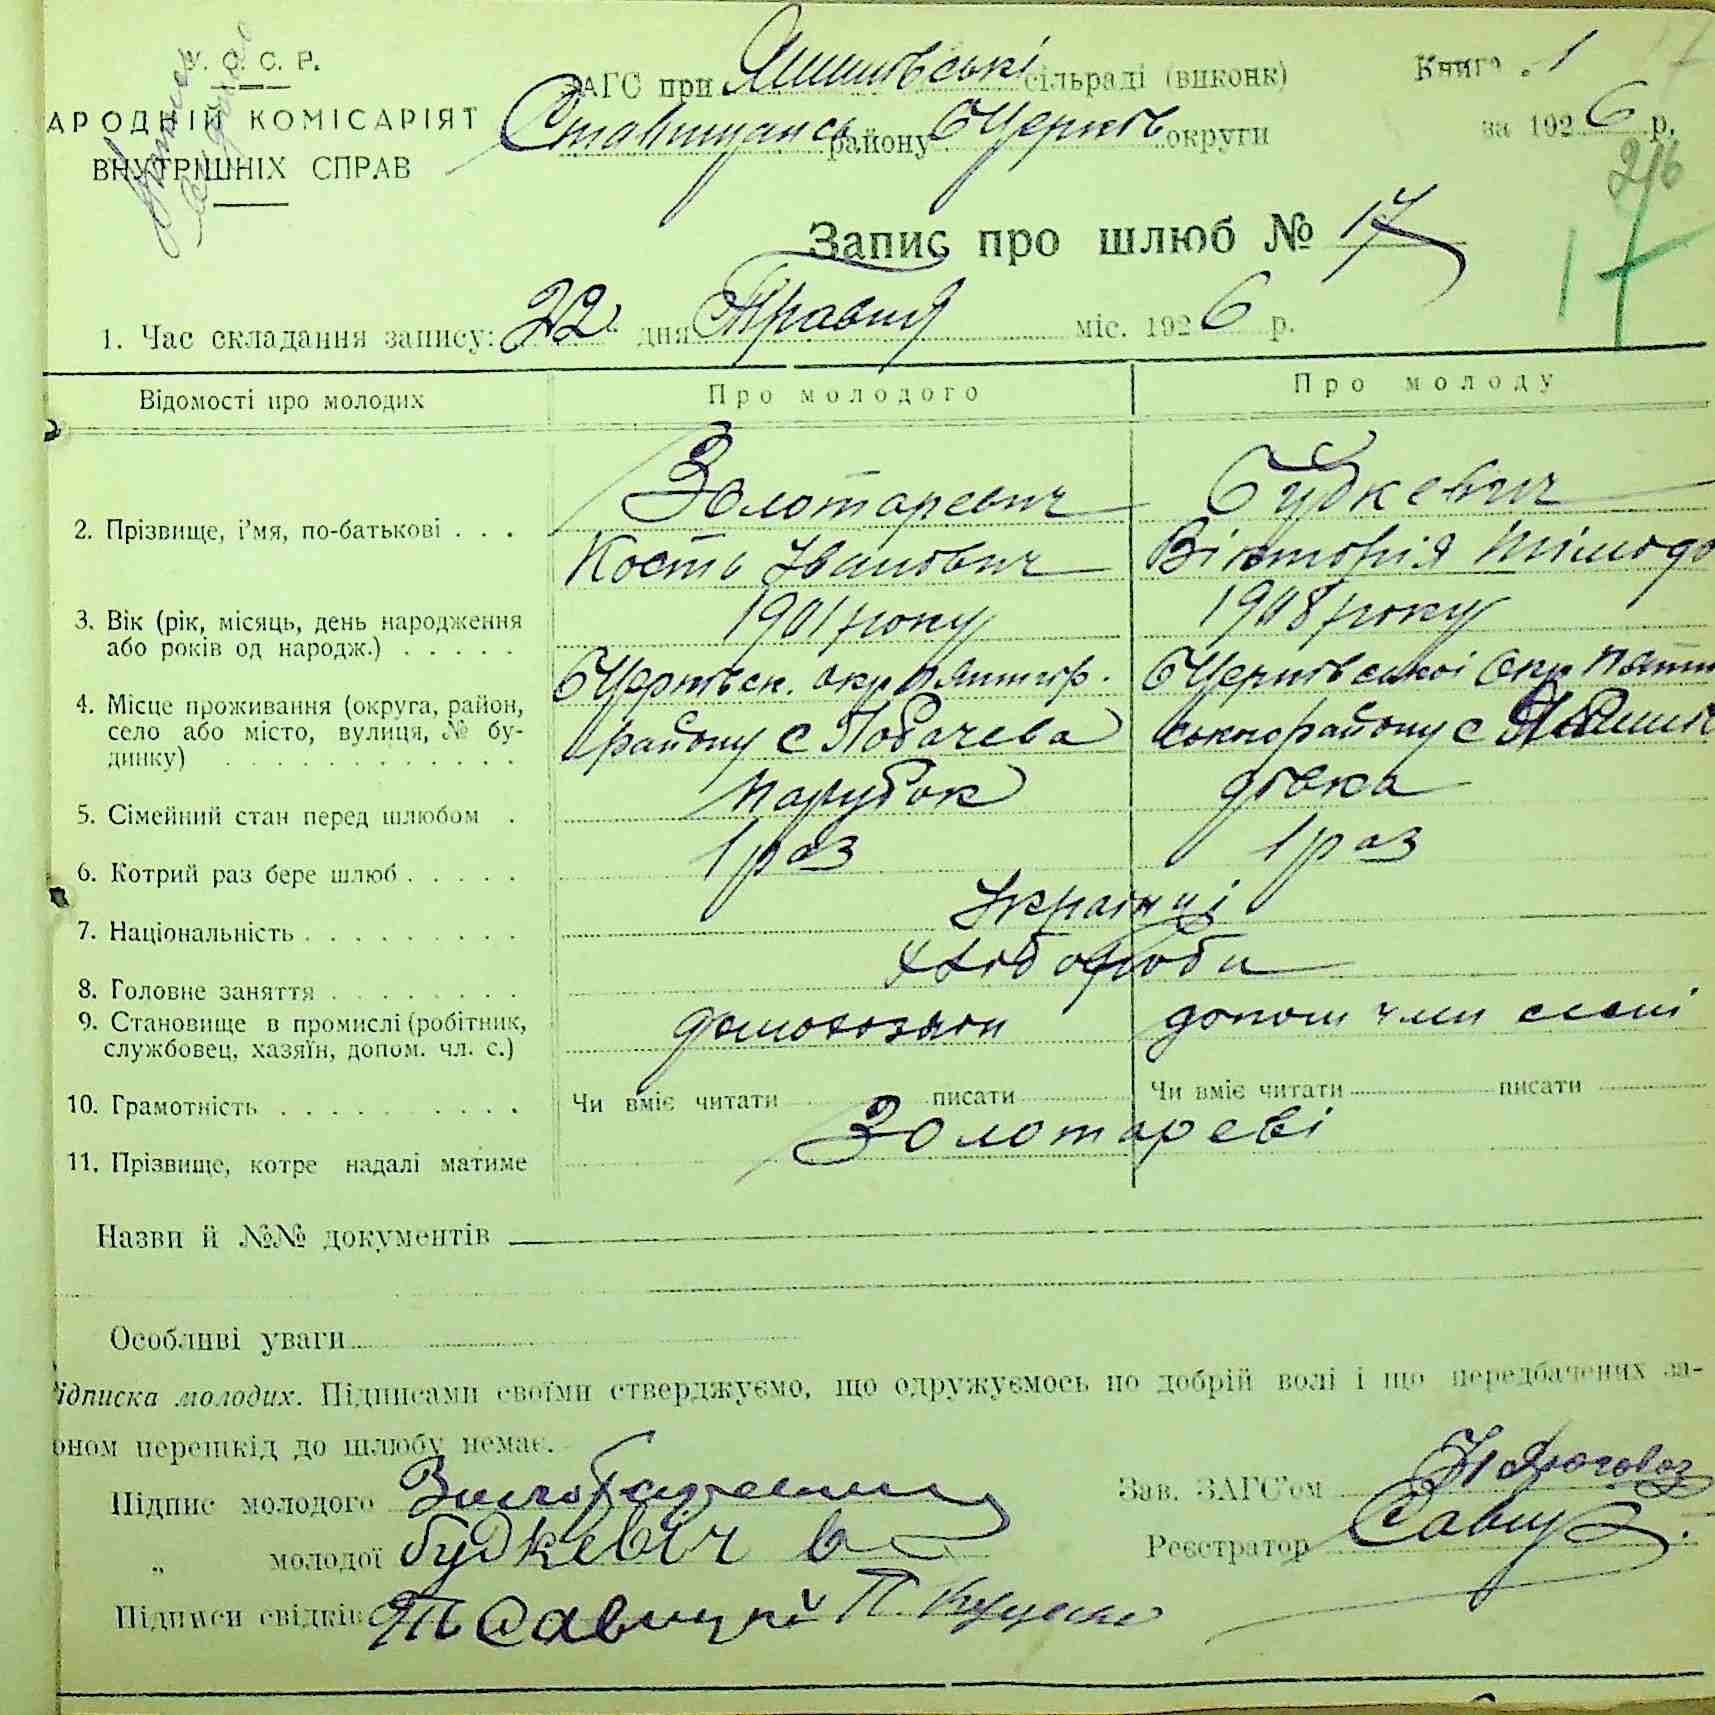 У. С. С. Р.
АРОДНІЙ КОМІСАРІЯТ
ВНУТРІШНІХ СПРАВ
ЗАГС при сільраді (виконк)
району округи
Книга 1
за 1926 р.
Запис про шлюб № 17
17
1. Час складання запису: 22 дня Травня міс. 1926 р.
Відомості про молодих Про молодого Про молоду
Золотаревич Будкевич
2. Прізвище, і'мя, по-батькові . . .
Кость Іванович Вікторія
3. Вік (рік, місяць, день народження 1901 року 1908 року
або років од народж.) . . . . .
4. Місце проживання (округа, район,
село або місто, вулиця, № бу- району с Лобачева району с
динку) . . . . . . . . . . .
5. Сімейний стан перед шлюбом . парубок дівка
6. Котрий раз бере шлюб . . . . . 1 раз 1 раз
7. Національність . . . . . . . . . Українці
8. Головне заняття . . . . . . . . хлібороби
9. Становище в промислі (робітник, допом член сем'ї
службовец, хазяїн, допом. чл. с.)
10. Грамотність . . . . . . . . . . Чи вміє читати писати Чи вміє читати писати
11. Прізвище, котре надалі матиме Золотареві
Назви й №№ документів
Особливі уваги
ідписка молодих. Підписами своїми стверджуємо, що одружуємось по добрій волі і що передбачених за-
оном перешкід до шлюбу немає.
Підпис молодого Зав. ЗАГС'ом
„ молодої Будкевіч В Реєстратор
Підписи свідків Савицкі П.